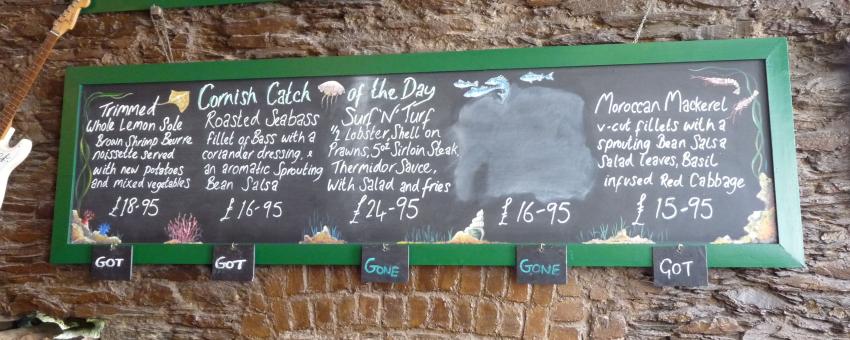 Cornish Catch of the Day
Trimmed
Whole Lemon Sole
Brown Shrimp Beurre
noissette served
with new potatoes
and mixed vegetables
£18-95
Roasted Seabass
fillet of Bass with a
coriander dressing, &
an aromatic Sprouting
Bean Salsa
£16-95
Surf 'N' Turf
½ Lobster, Shell on
Prawns, 5oz Sirloin Steak,
Thermidor Sauce,
with Salad and fries
£24-95
£16-95
Moroccan Mackerel
v-cut fillets with a
sprouting Bean Salsa
Salad leaves, Basil
infused Red Cabbage
£15-95
GOT
GOT
GONE
GONE
GOT